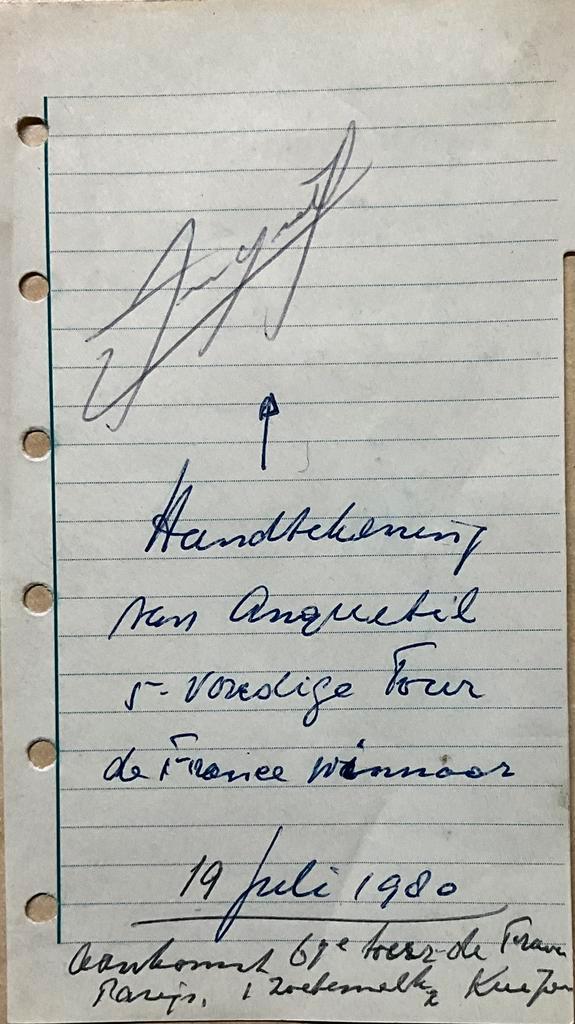 Anquetil
↑
Handtekening
van Anquetil
5-voudige Tour
de France winnaar
19 juli 1980
Aankomst 67e toer de Fran
Parijs, 1 Zoetemelk 2 Kuiper